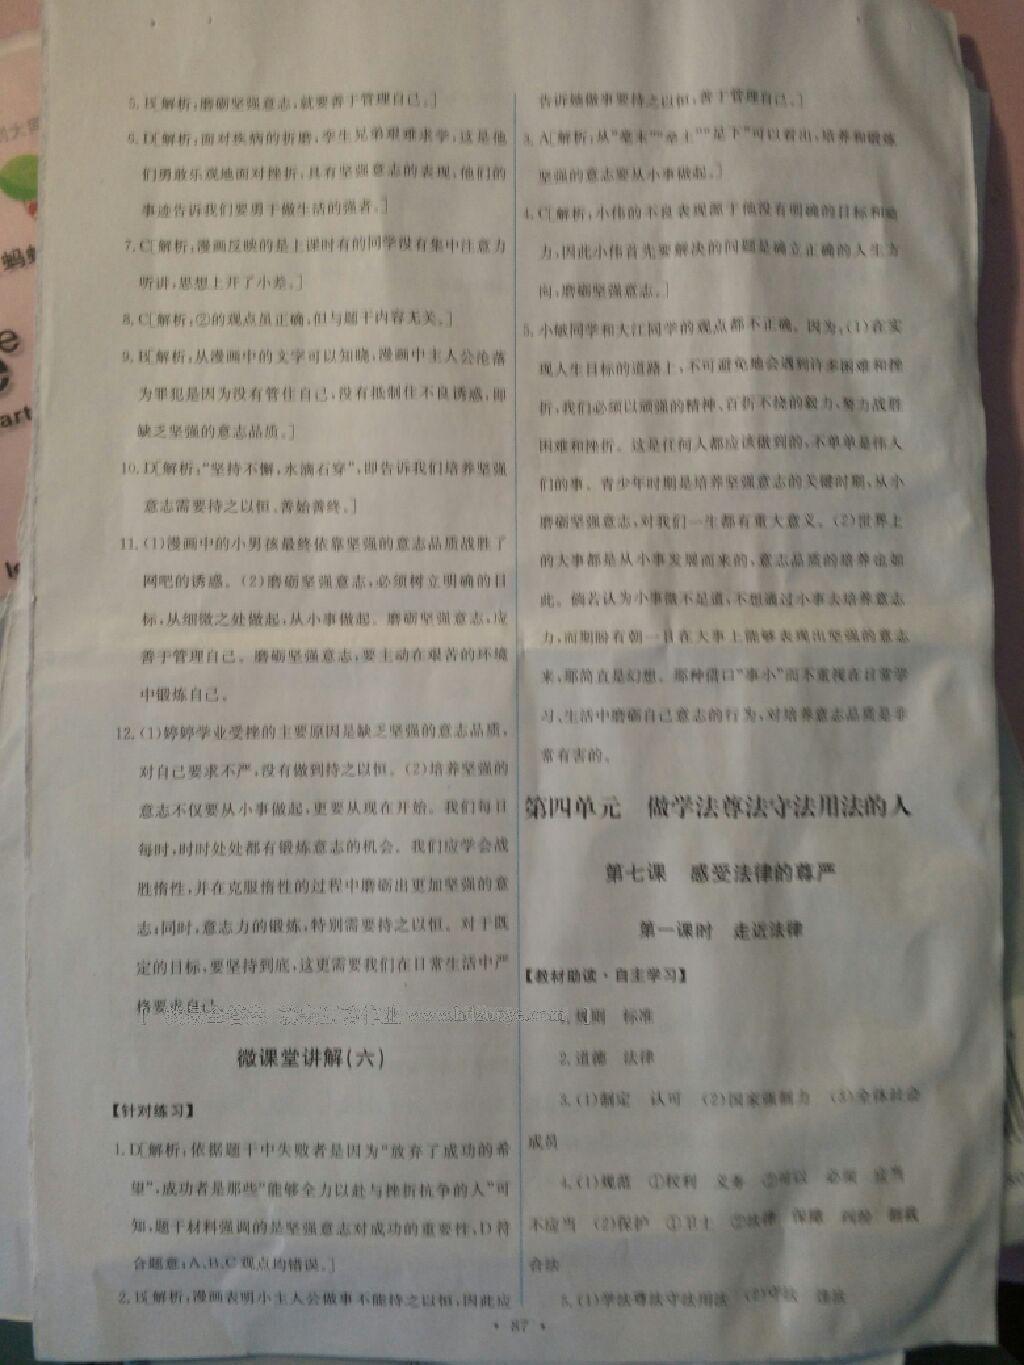 5.D[解析:磨砺坚强意志,就要善于管理自己。]
6.D[解析:面对疾病的折磨,孪生兄弟艰难求学,这是他
们勇敢乐观地面对挫折,具有坚强意志的表现,他们的
事迹告诉我们要勇于做生活的强者。]
7.C[解析:漫画反映的是上课时有的同学没有集中注意力
听讲,思想上开了小差。]
8.C[解析:②的观点虽正确,但与题干内容无关。]
9.D[解析:从漫画中的文字可以知晓,漫画中主人公沦落
为罪犯是因为没有管住自己,没有抵制住不良诱惑,即
缺乏坚强的意志品质。]
10.D[解析:“坚持不懈,水滴石穿”,即告诉我们培养坚强
意志需要持之以恒、善始善终。]
11.(1)漫画中的小男孩最终依靠坚强的意志品质战胜了
网吧的诱惑。(2)磨砺坚强意志,必须树立明确的目
标,从细微之处做起,从小事做起。磨砺坚强意志,应
善于管理自己。磨砺坚强意志,要主动在艰苦的环境
中锻炼自己。
12.(1)婷婷学业受挫的主要原因是缺乏坚强的意志品质,
对自己要求不严,没有做到持之以恒。(2)培养坚强的
意志不仅要从小事做起,更要从现在开始。我们每日
每时,时时处处都有锻炼意志的机会。我们应学会战
胜惰性,并在克服惰性的过程中磨砺出更加坚强的意
志;同时,意志力的锻炼,特别需要持之以恒。对于既
定的目标,要坚持到底,这更需要我们在日常生活中严
格要求自己
微课堂讲解(六)
【针对练习】
1.D[解析:依据题干中失败者是因为“放弃了成功的希
望”,成功者是那些“能够全力以赴与挫折抗争的人”可
知,题干材料强调的是坚强意志对成功的重要性,D符
合题意;A、B、C观点均错误。]
2.D[解析:漫画表明小主人公做事不能持之以恒,因此应
告诉她做事要持之以恒,善于管理自己。]
3.A[解析:从“毫末”“垒土”“足下”可以看出,培养和锻炼
坚强的意志要从小事做起。]
4.C[解析:小伟的不良表现源于他没有明确的目标和动
力,因此小伟首先要解决的问题是确立正确的人生方
向,磨砺坚强意志。]
5.小敏同学和大江同学的观点都不正确。因为,(1)在实
现人生目标的道路上,不可避免地会遇到许多困难和挫
折,我们必须以顽强的精神、百折不挠的毅力,努力战胜
困难和挫折。这是任何人都应该做到的,不单单是伟人
们的事。青少年时期是培养坚强意志的关键时期,从小
磨砺坚强意志,对我们一生都有重大意义。(2)世界上
的大事都是从小事发展而来的,意志品质的培养也如
此。倘若认为小事微不足道,不想通过小事去培养意志
力,而期盼有朝一日在大事上能够表现出坚强的意志
来,那简直是幻想。那种借口“事小”而不重视在日常学
习、生活中磨砺自己意志的行为,对培养意志品质是非
常有害的。
第四单元 做学法尊法守法用法的人
第七课 感受法律的尊严
第一课时 走近法律
【教材助读·自主学习】
1.规则 标准
2.道德 法律
3.(1)制定 认可 (2)国家强制力 (3)全体社会
成员
4.(1)规范 ①权利 义务 ②可以 必须 应当
不应当 (2)保护 ①卫士 ②法律 保障 纠纷 制裁
合法
5.(1)学法尊法守法用法 (2)守法 违法
· 87 ·